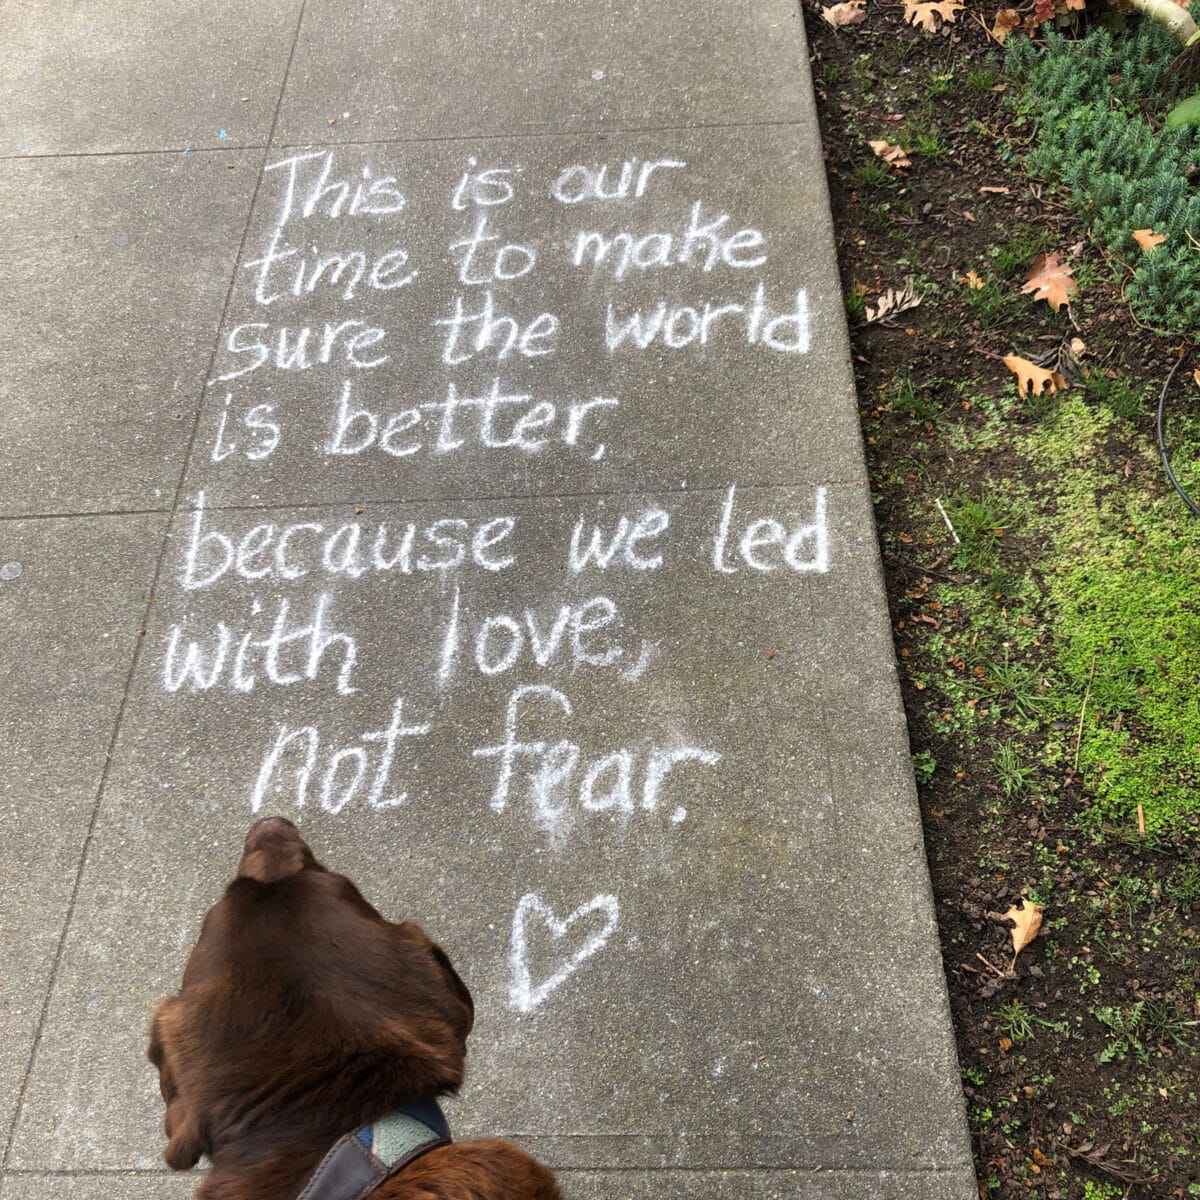 This is our
time to make
sure the world
is better,
because we led
with love,
not fear.